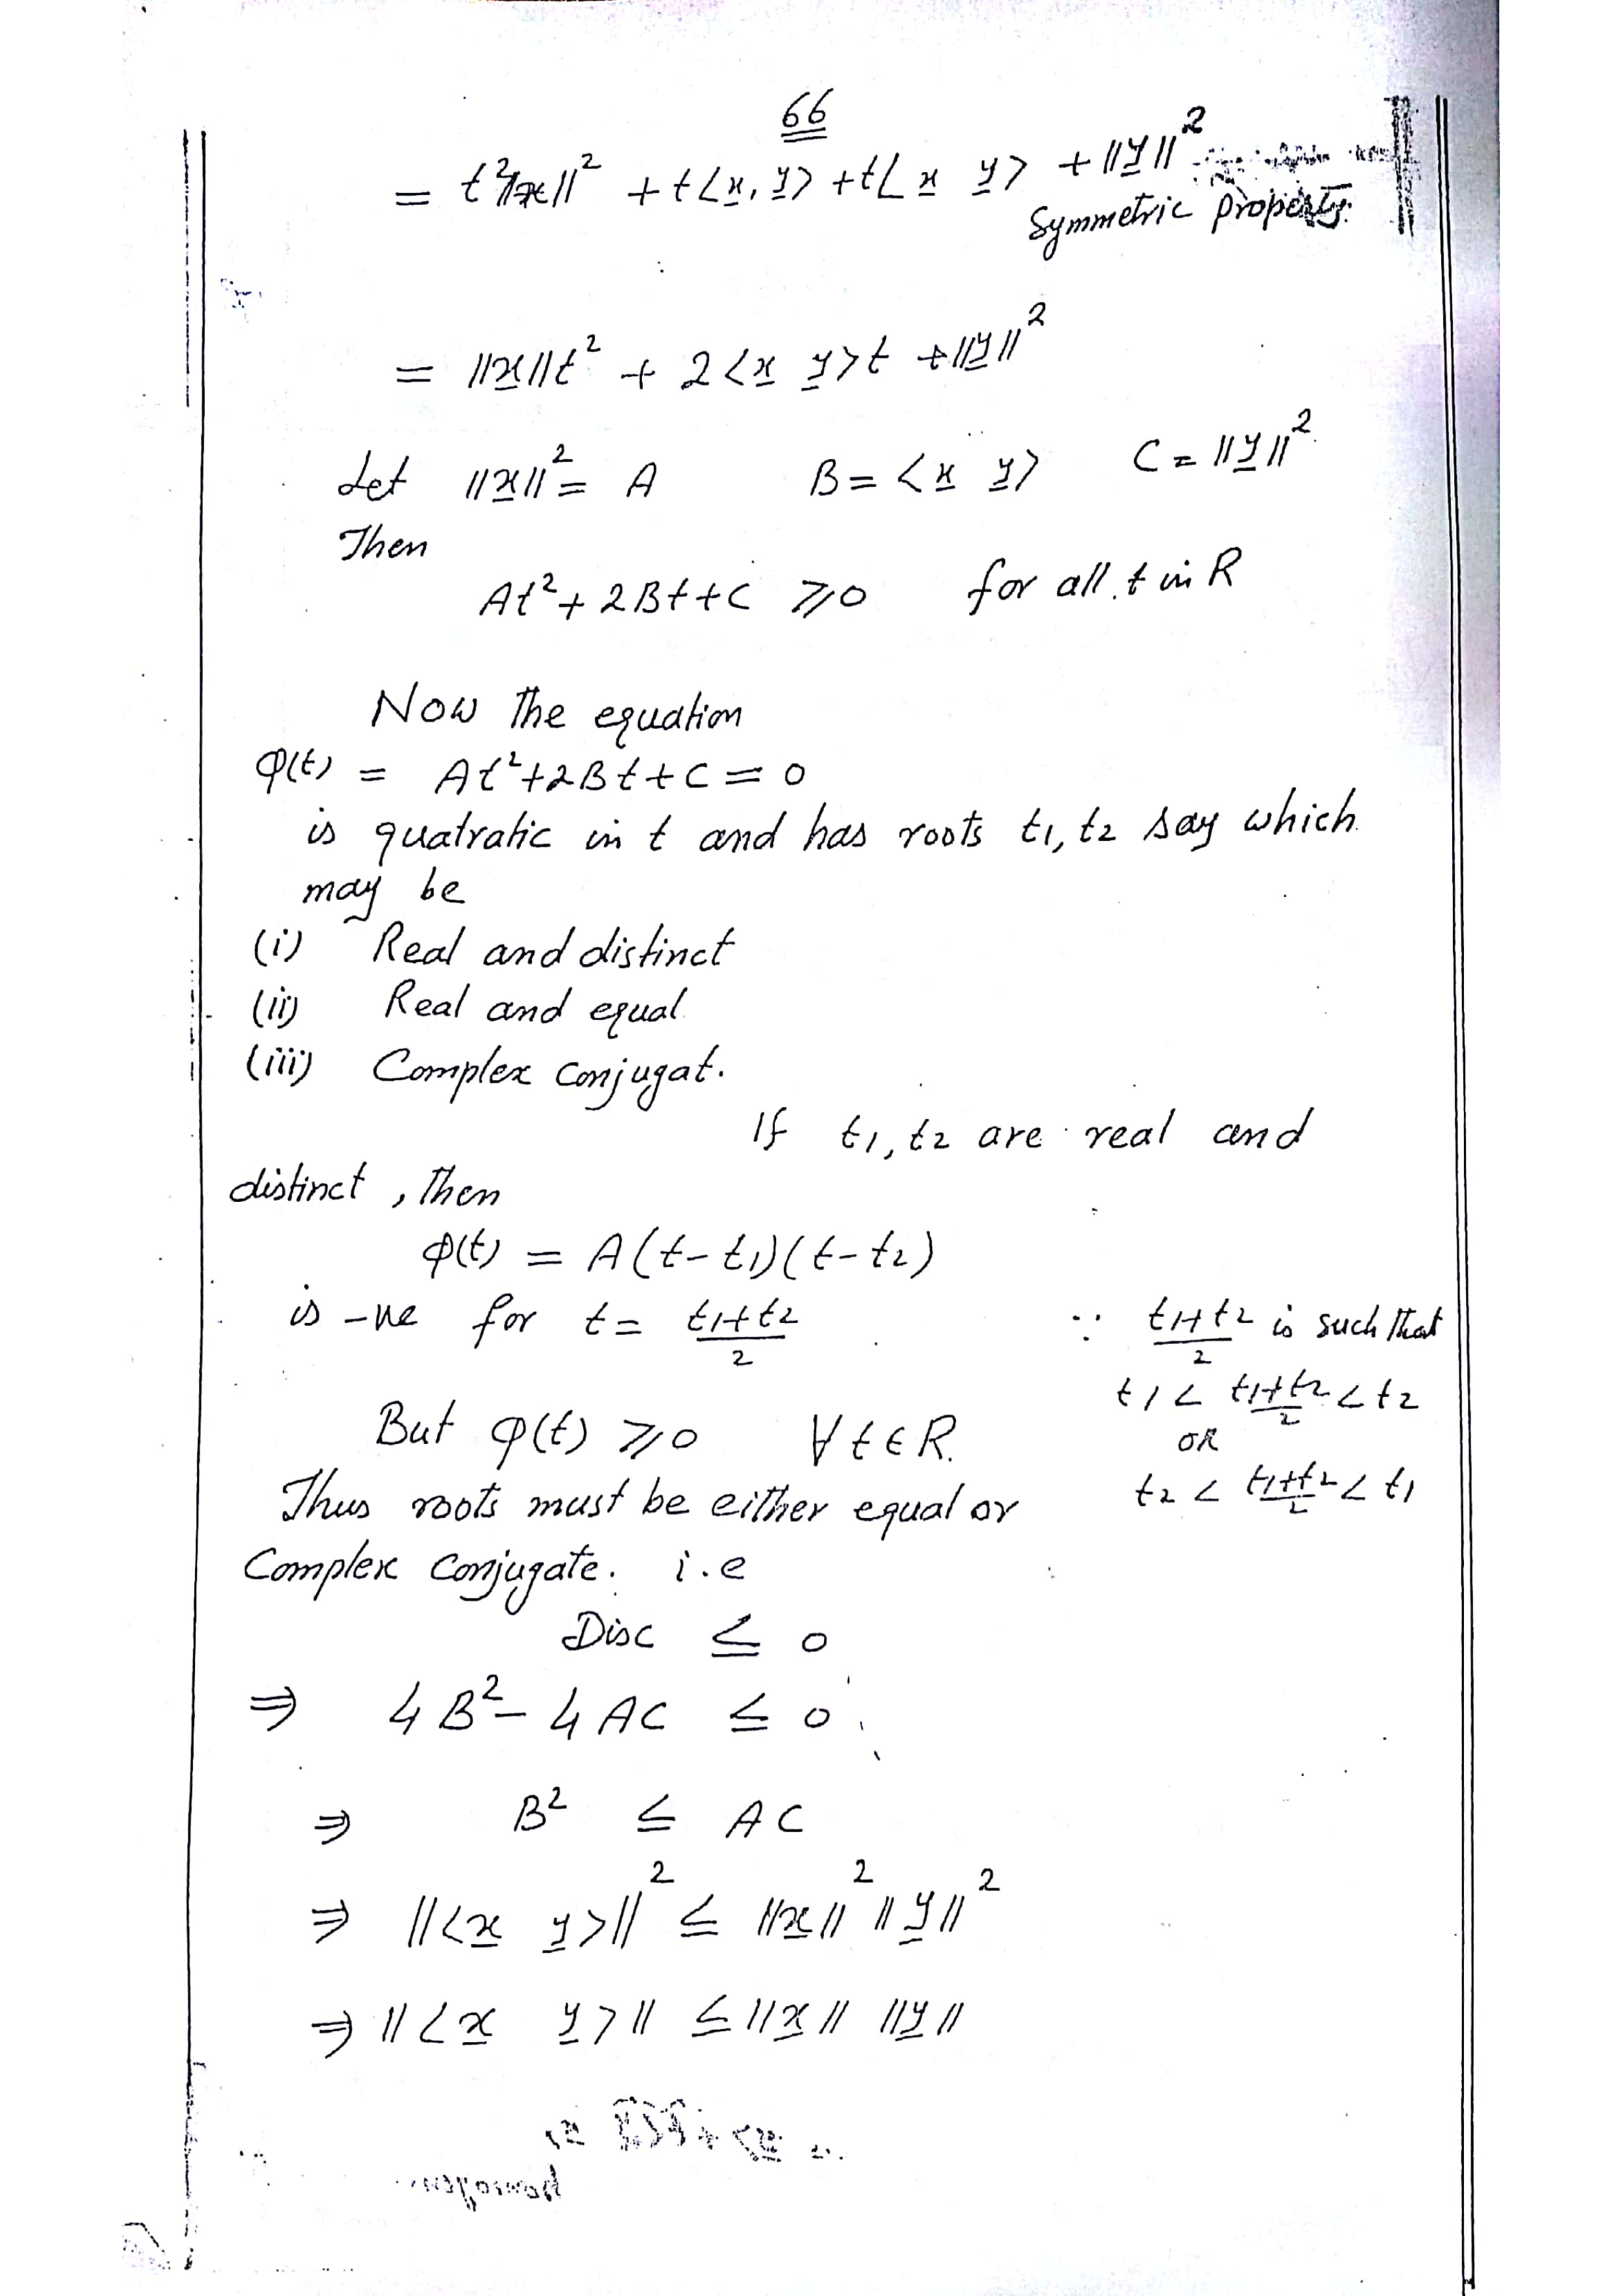 66
= t²||x||² + t<x, y> + t<x y> + ||y||²
Symmetric property
= ||x||t² + 2<x y>t + ||y||²
Let ||x||² = A B = <x y> C = ||y||²
Then
At² + 2Bt + C ≥ 0 for all t in R
Now the equation
φ(t) = At² + 2Bt + C = 0
is quatratic in t and has roots t1, t2 say which
may be
(i) Real and distinct
(ii) Real and equal
(iii) Complex conjugat.
If t1, t2 are real and
distinct, then
φ(t) = A(t - t1)(t - t2)
is -ve for t = (t1 + t2)/2 ∵ (t1 + t2)/2 is such that
t1 < (t1 + t2)/2 < t2
But φ(t) ≥ 0 ∀ t ∈ R.
OR
Thus roots must be either equal or t2 < (t1 + t2)/2 < t1
Complex conjugate. i.e
Disc ≤ 0
⇒ 4B² - 4AC ≤ 0
⇒ B² ≤ AC
⇒ ||<x y>||² ≤ ||x||² ||y||²
⇒ ||<x y>|| ≤ ||x|| ||y||